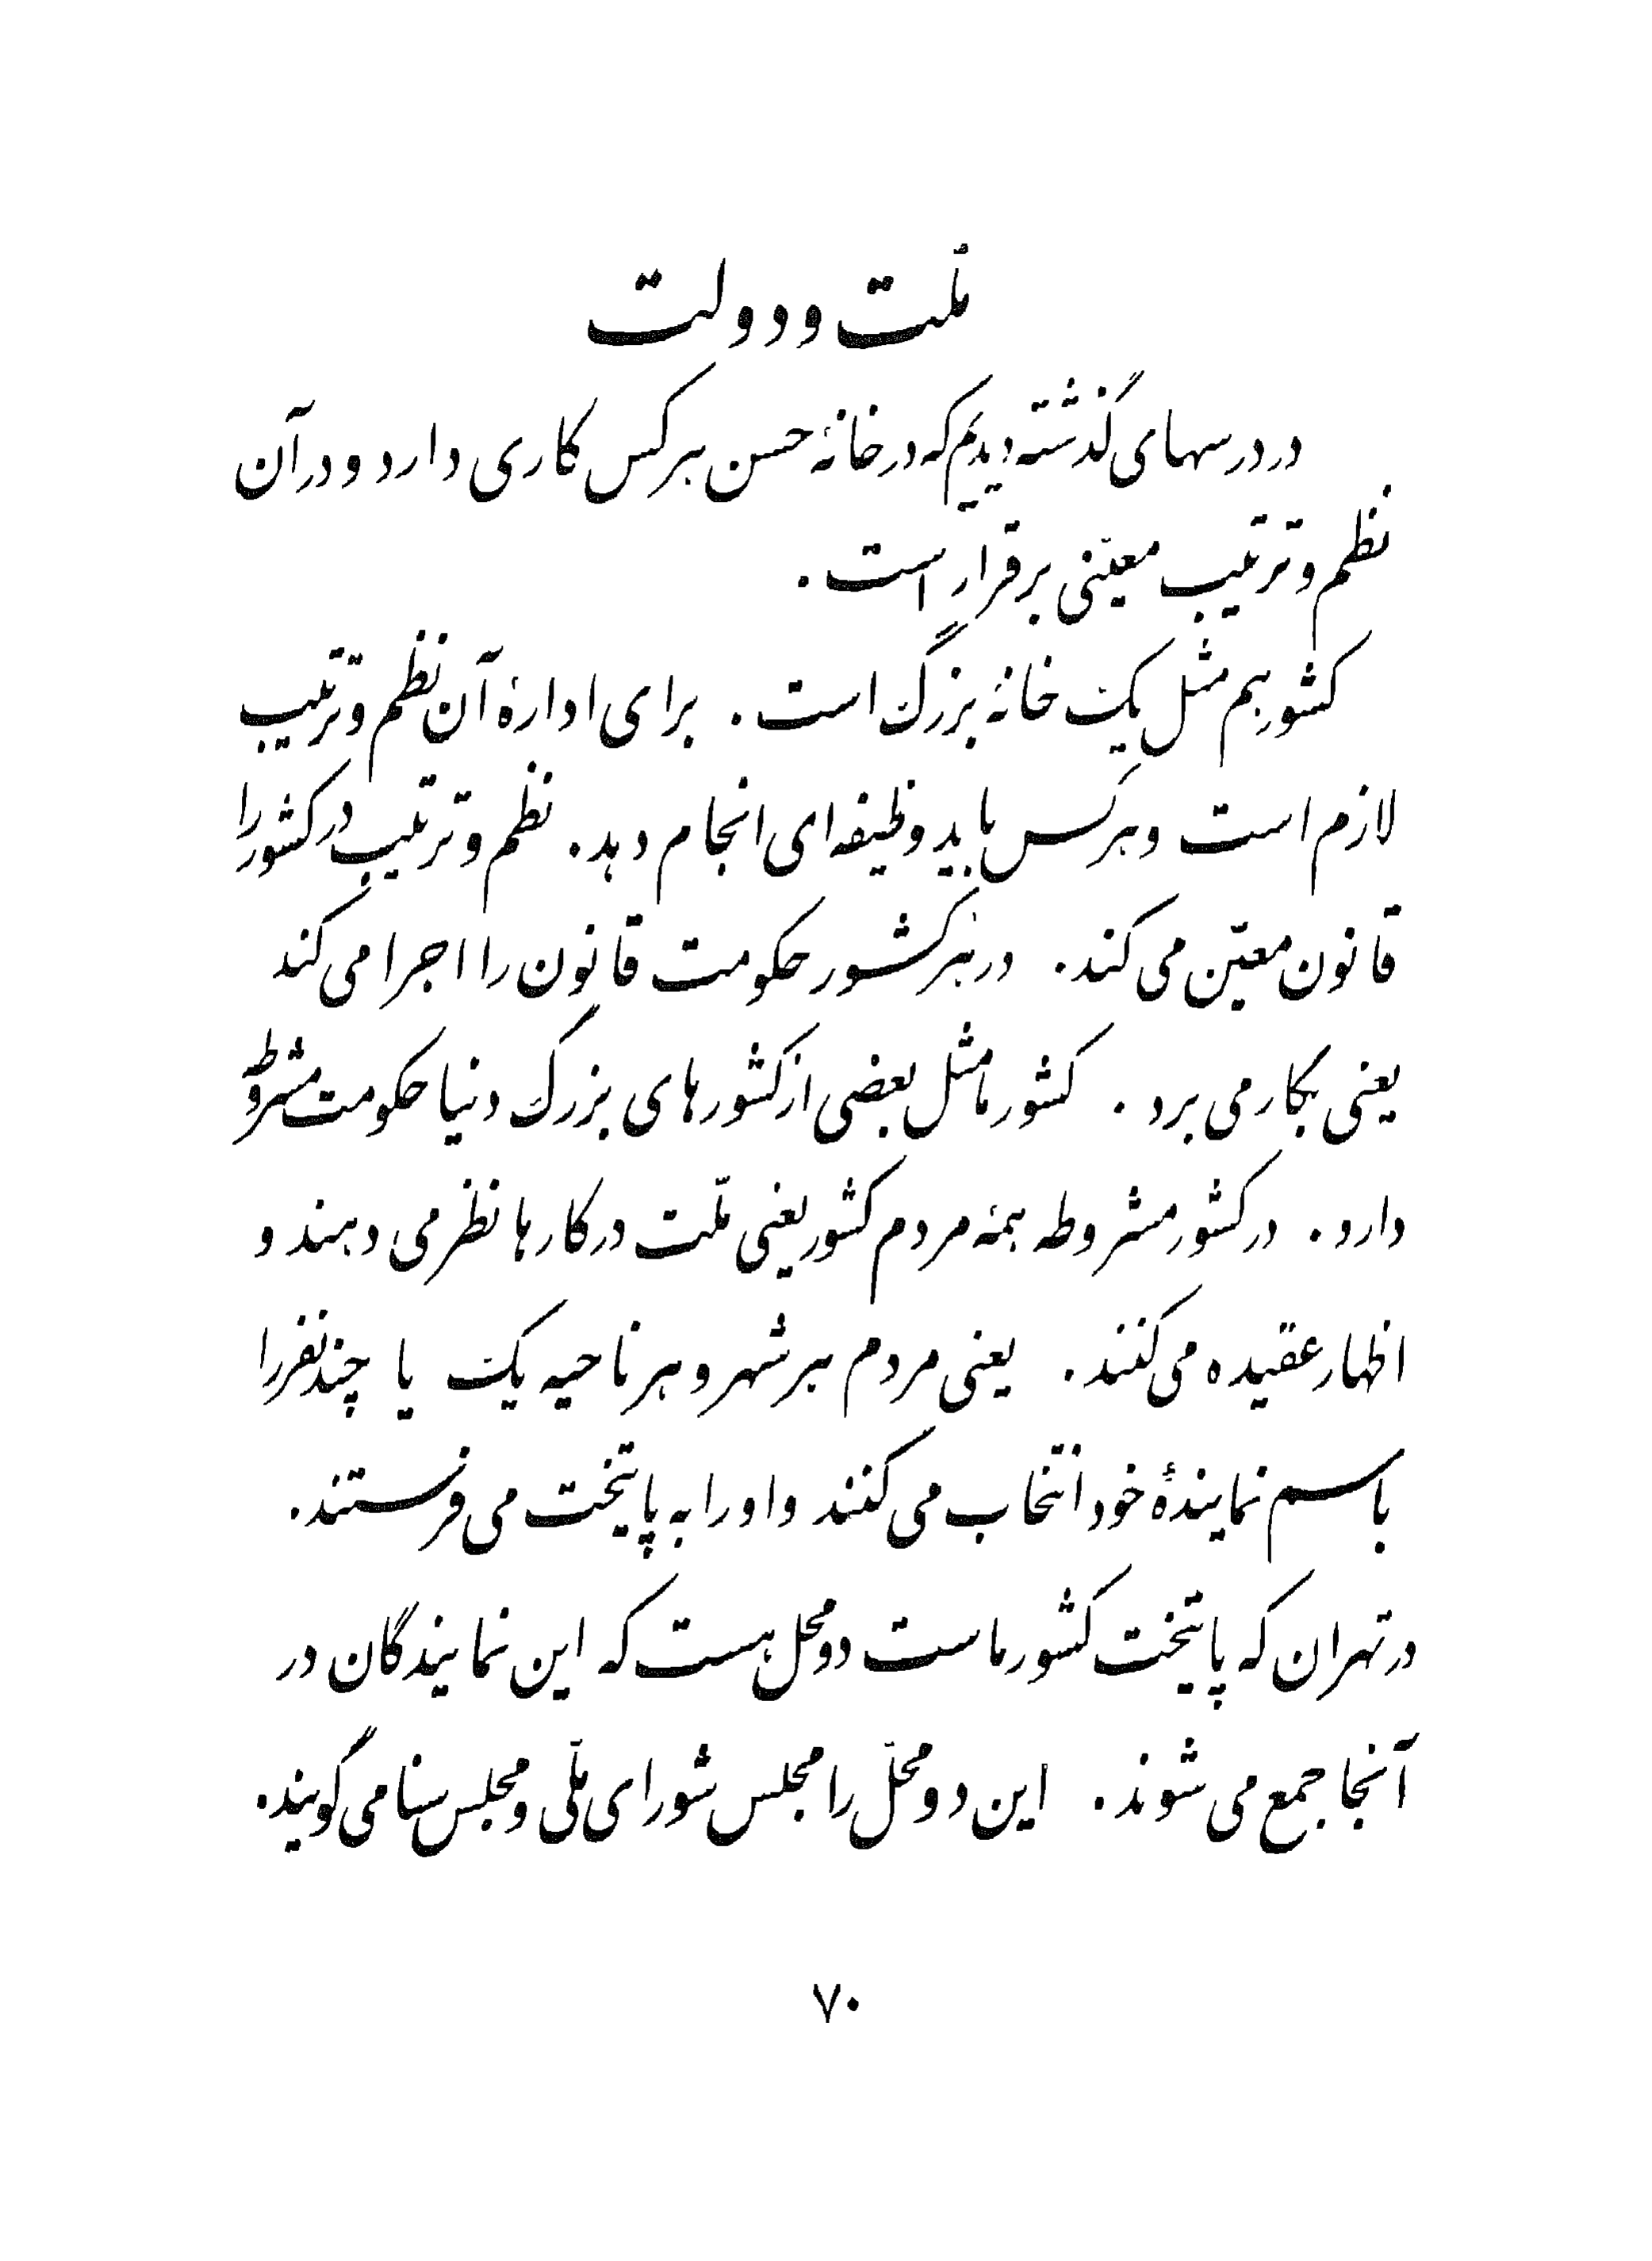 ملّت و دولت
در درسهای گذشته دیدیم که در خانهٔ حسن هرکس کاری دارد و در آن
نظم و ترتیب معیّنی برقرار است .
کشور هم مثل یک خانهٔ بزرگ است . برای ادارهٔ آن نظم و ترتیب
لازم است و هرکس باید وظیفه‌ای انجام دهد . نظم و ترتیب در کشور را
قانون معیّن می‌کند . در هر کشور حکومت قانون را اجرا می‌کند
یعنی بکار می‌برد . کشور ما مثل بعضی از کشورهای بزرگ دنیا حکومت مشروطه
دارد . در کشور مشروطه همهٔ مردم کشور یعنی ملّت در کارها نظر می‌دهند و
اظهار عقیده می‌کنند . یعنی مردم هر شهر و هر ناحیه یک یا چند نفر را
باسم نمایندهٔ خود انتخاب می‌کنند و او را به پایتخت می‌فرستند .
در تهران که پایتخت کشور ماست دو محل هست که این نمایندگان در
آنجا جمع می‌شوند . این دو محلّ را مجلس شورای ملّی و مجلس سنا می‌گویند .
۷۰